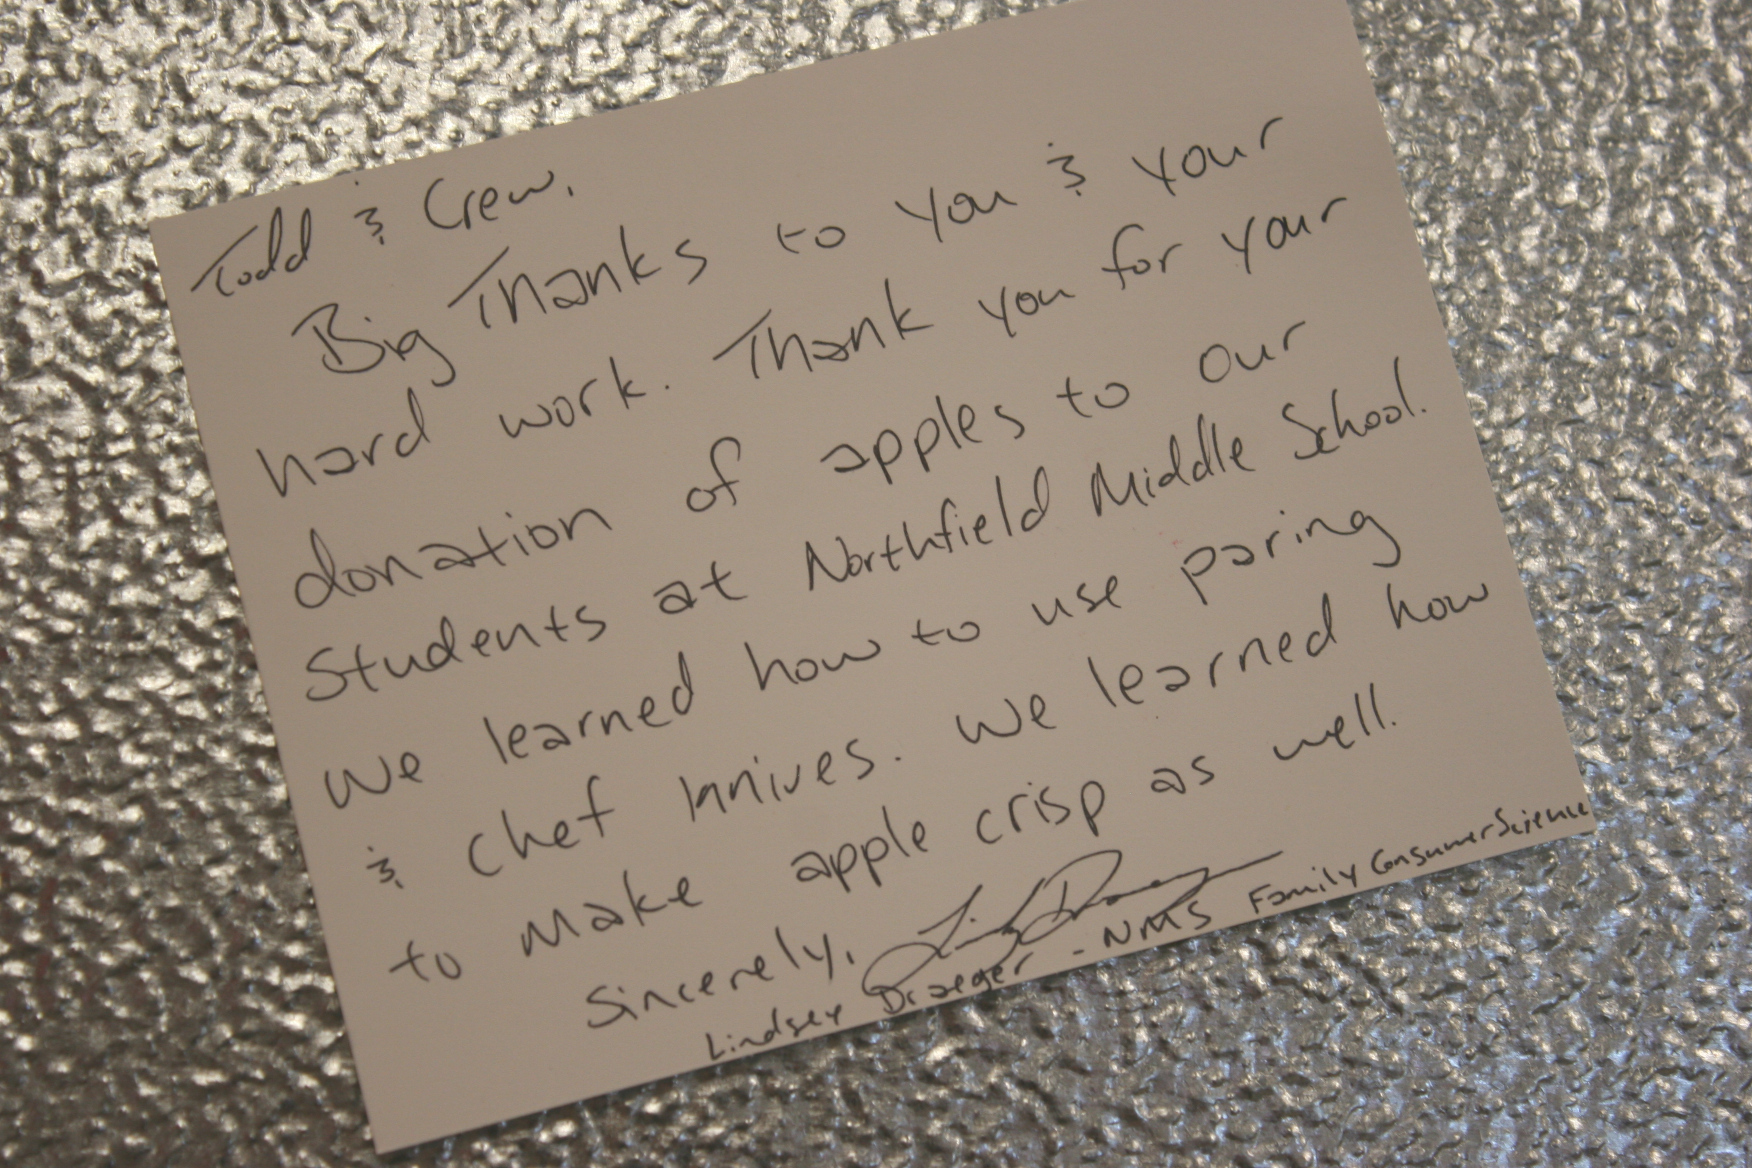 Todd & Crew,
Big Thanks to you & your
hard work. Thank you for your
donation of apples to our
students at Northfield Middle School.
We learned how to use paring
& chef knives. We learned how
to make apple crisp as well.
Sincerely,
Lindsey Draeger - NMS Family Consumer Science